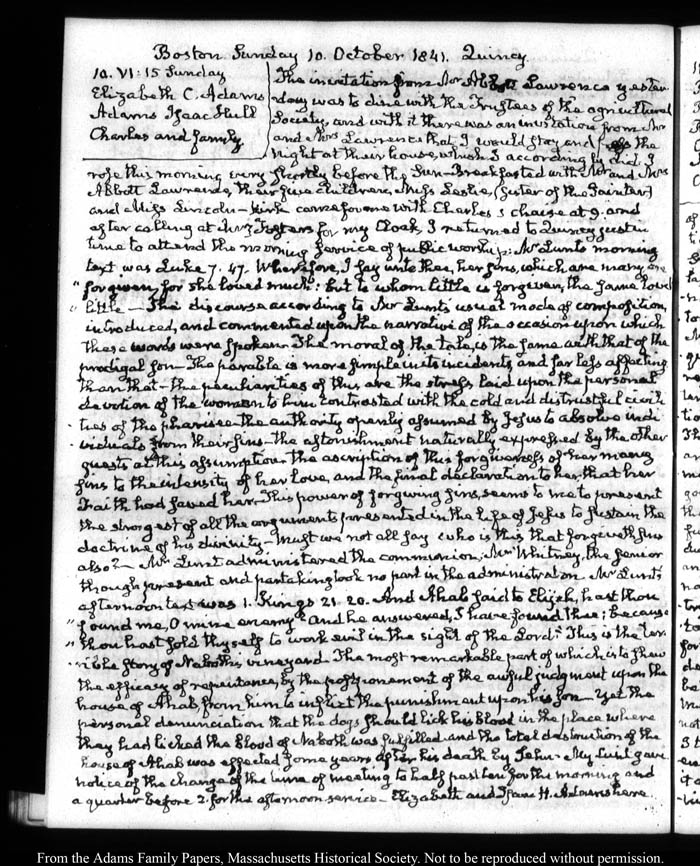 Boston Sunday 10. October 1841. Quincy
10. VI: 15 Sunday
Elizabeth C. Adams
Adams Isaac Hull
Charles and family
The invitation from Mr Abbott Lawrence yester-
day was to dine with the Trustees of the agricultural
Society, and with it there was an invitation from Mr
and Mrs Lawrence that I would stay and pass the
night at their house, which I accordingly did. I
rose this morning very shortly before the Sun - Breakfasted with Mr and Mrs
Abbott Lawrence, their five children, Miss Leslie, (Sister of the Painter)
and Miss Lincoln - Kirk came for me with Charles's chaise at 9. and
after calling at Mrs Foster's for my Cloak I returned to Quincy just in
time to attend the morning service of public worship. Mr Lunt's morning
text was Luke 7. 47. Wherefore, I say unto thee, her sins, which are many, are
" forgiven, for she loved much: but to whom little is forgiven, the same loveth
" little - The discourse according to Mr Lunt's usual mode of composition,
introduced, and commented upon the narrative of the occasion upon which
these words were spoken. The moral of the tale, is the same with that of the
prodigal son - The parable is more simple in its incidents, and far less affecting
than that - the peculiarities of this are the stress laid upon the personal
devotion of the woman to him, contrasted with the cold and distrustful civili-
ties of the pharisee - the authority openly assumed by Jesus to absolve indi-
viduals from their sins - the astonishment naturally expressed by the other
guests at this assumption - the ascription of this forgiveness of her many
sins to the intensity of her love, and the final declaration to her, that her
Faith had saved her. This power of forgiving sins, seems to me to present
the strongest of all the arguments presented in the life of Jesus to sustain the
doctrine of his divinity - Must we not all say who is this that forgiveth sins
also? - Mr Lunt administered the communion; Mr Whitney, the senior
though present and partaking took no part in the administration. Mr Lunt's
afternoon text was 1. Kings 21. 20. And Ahab said to Elijah, hast thou
" found me, O mine enemy? and he answered, I have found thee; because
" thou hast sold thyself to work evil in the sight of the Lord: This is the ter-
rible story of Naboth's vineyard. The most remarkable part of which is to shew
the efficacy of repentance, by the postponement of the awful judgment upon the
house of Ahab, from him to inflict the punishment upon his son - Yet the
personal denunciation that the dogs should lick his blood in the place where
they had licked the blood of Naboth was fulfilled and the total destruction of the
house of Ahab was effected some years after his death by Jehu - Mr Lunt gave
notice of the change of the time of meeting to half past ten for the morning and
a quarter before 2. for the afternoon service - Elizabeth and Isaac H. Adams here.
From the Adams Family Papers, Massachusetts Historical Society. Not to be reproduced without permission.